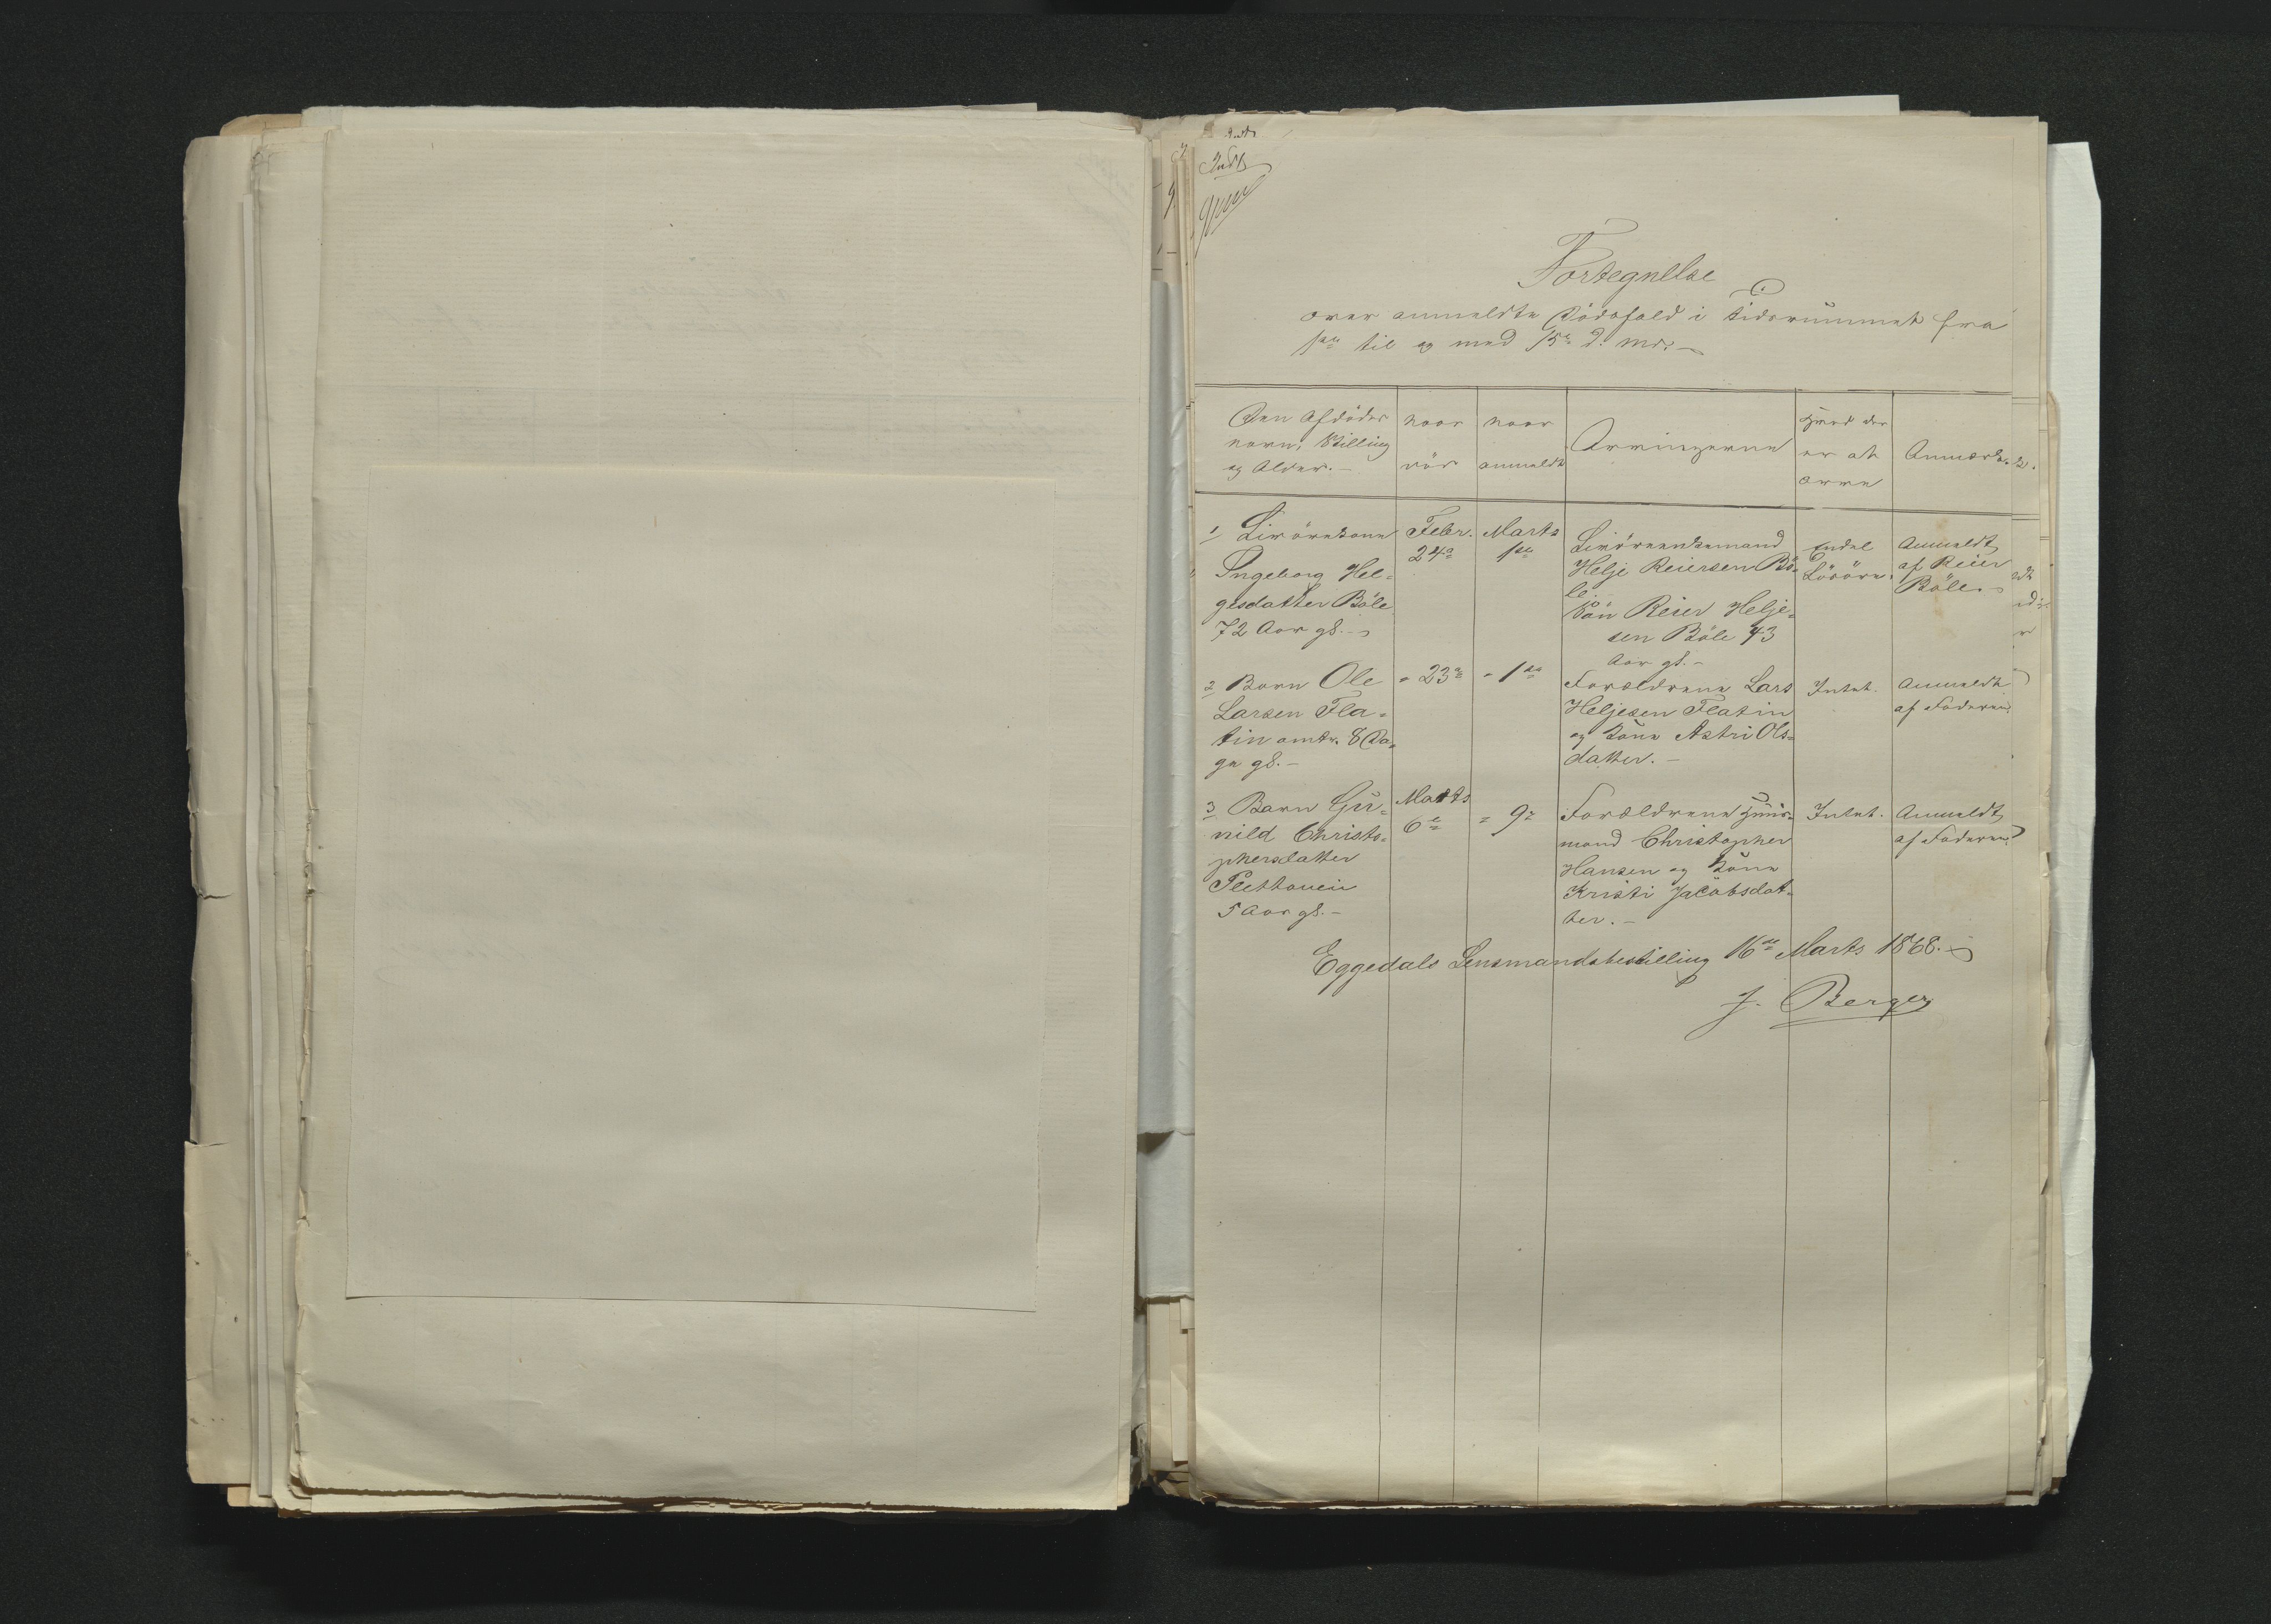 Fortegnelse
over anmeldte Dödsfald i Tidsrummet fra
1ste til og med 15de d. Md.
Den Afdödes
Navn, Stilling
og Alder.
naar
död
naar
anmeldt
Arvingerne
Hvad der
er at
arve
Anmærk.
1 Livörekone
Ingeborg Hel-
gesdatter Böle
72 Aar gl.
Febr.
24de
Marts
1ste
Helje Reiersen Bö-
le.
Sön Reier Helje-
sen Böle 43
Aar gl.
Endel
Lösöre.
Anmeldt
af Reier
Böle.
2 Barn Ole
Larsen Fla-
tin omtr. 8 Da-
ge gl.
" 23de
" 1ste
Forældrene Lars
Heljesen Flatin
og Kone Astri Ols-
datter.
Intet.
Anmeldt
af Faderen.
3 Barn Gu-
nild Christo-
phersdatter
5 Aar gl.
Marts
6te
" 9de
Forældrene Huus-
mand Christopher
Hansen og Kone
Kristi Jacobsdat-
ter.
Intet.
Anmeldt
af Faderen.
Eggedals Lensmandsbestilling 16de Marts 1868.
J. Berger